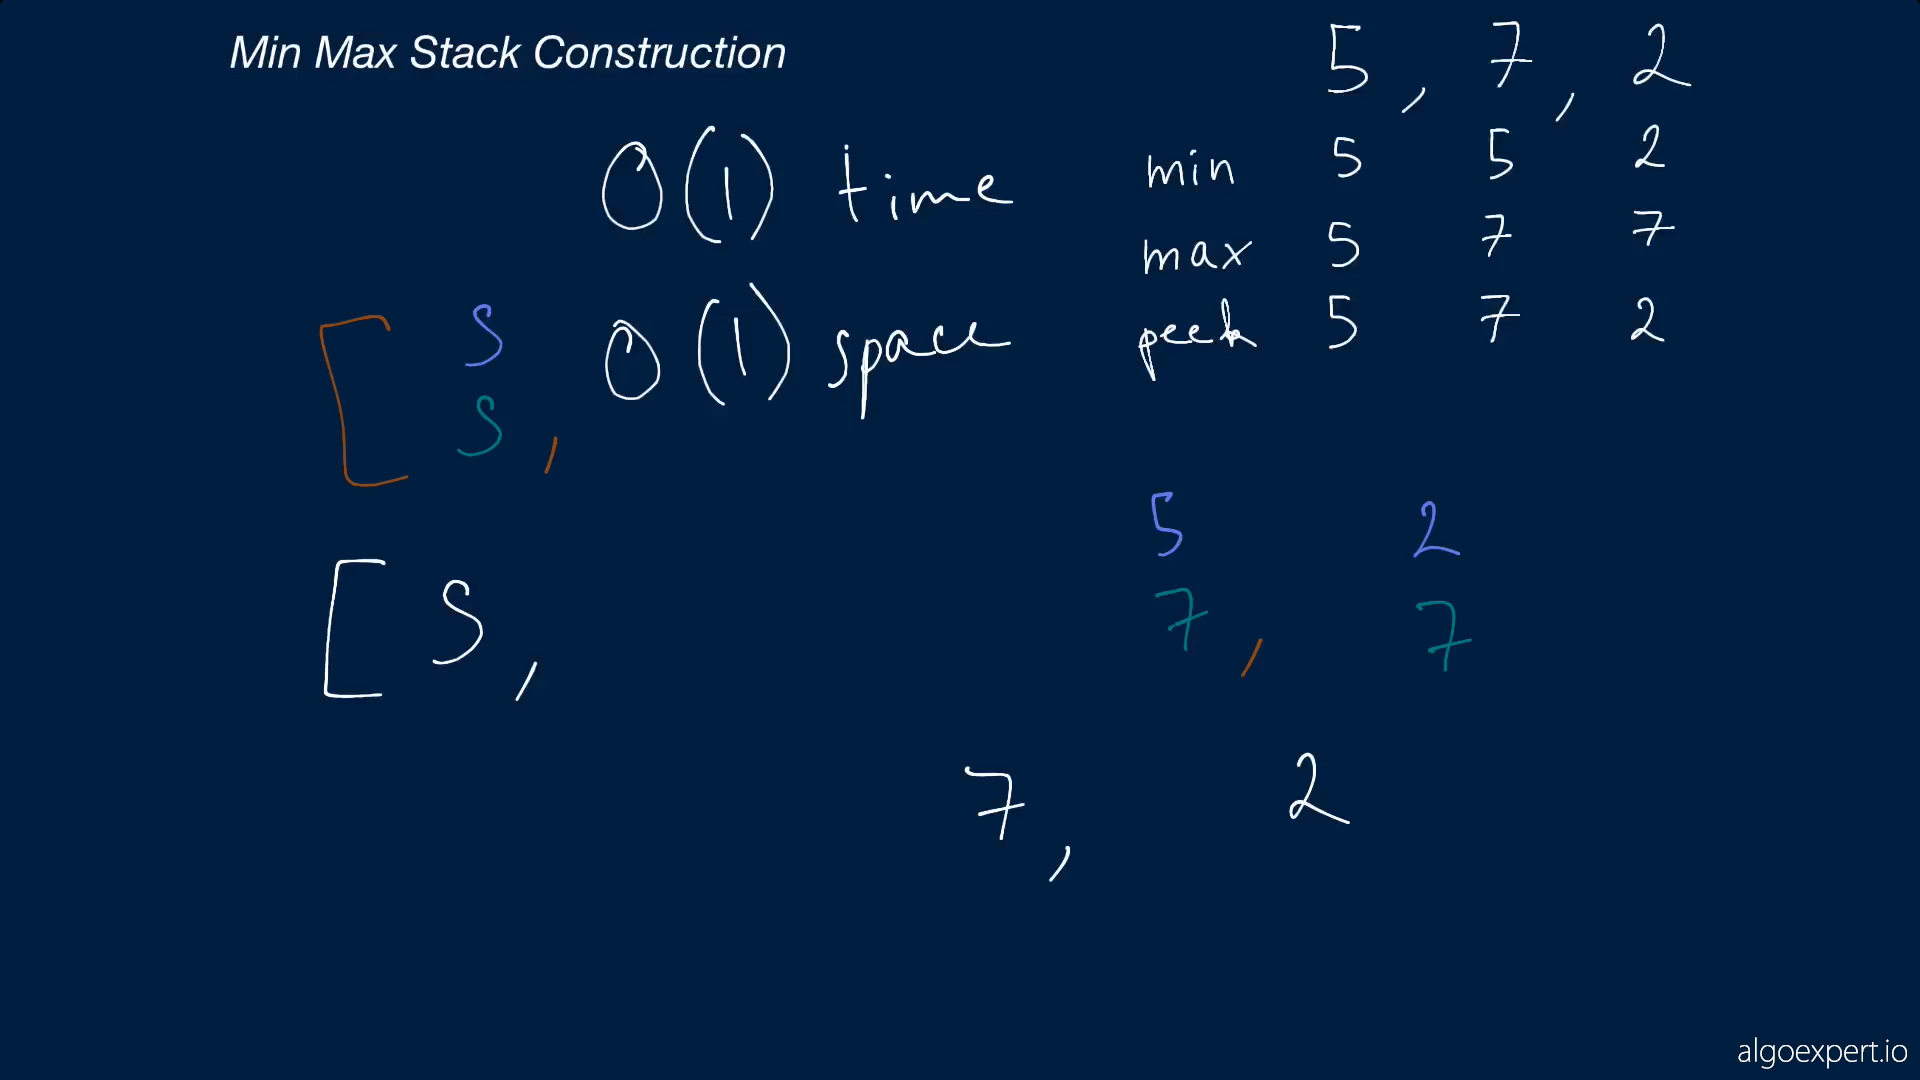 Min Max Stack Construction
5, 7, 2
O(1) time
min 5 5 2
max 5 7 7
O(1) space
peek 5 7 2
[ 5
5,
5 2
7, 7
[ 5,
7, 2
algoexpert.io